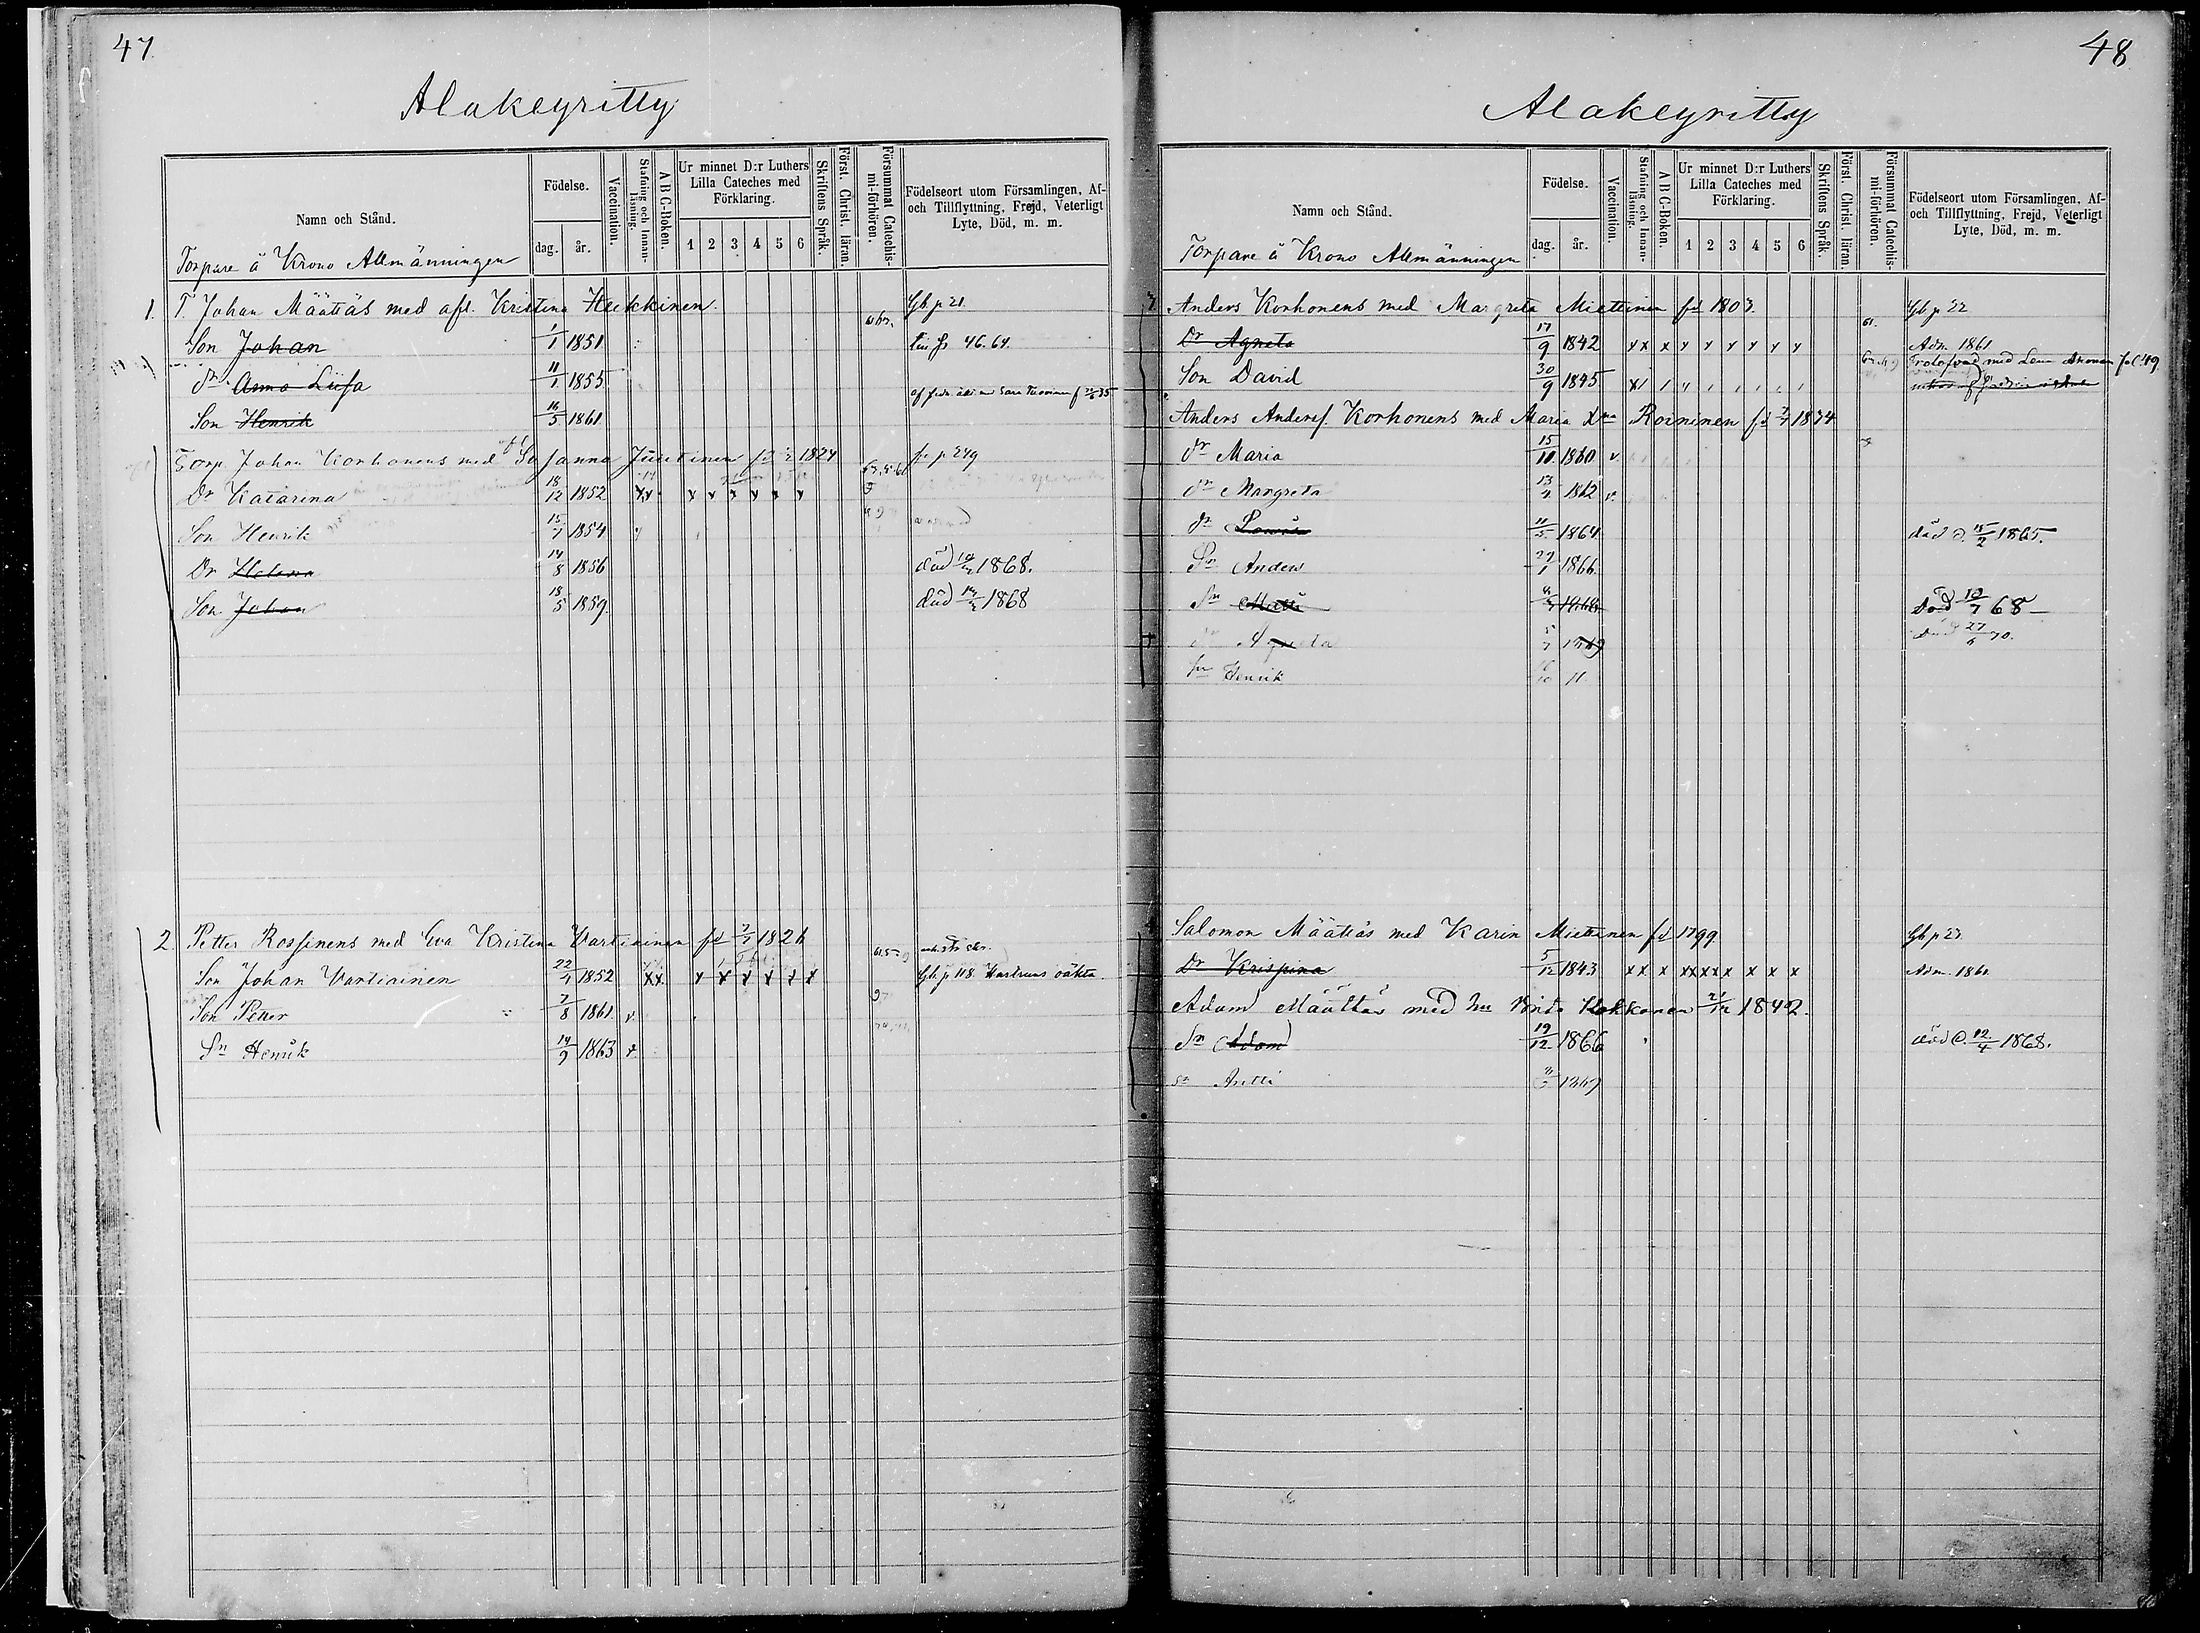 47
Alakeyritty
Namn och Stånd.
Födelse.
dag.
år.
Vaccination.
Stafning och Innanläsning.
A B C-Boken.
Ur minnet D:r Luthers Lilla Cateches med Förklaring.
1 2 3 4 5 6
Skriftens Språk.
Först. Christ. läran.
Försummat Catechismi-förhören.
Födelseort utom Församlingen, Af- och Tillflyttning, Frejd, Veterligt Lyte, Död, m. m.
Torpare å Krono Allmänningen
1. T. Johan Määttäs med afl. Kristina Heikkinen. Gb p 21.
Son Johan 1/1 1851 46.64.
dr Anna Liisa 11/1 1855
Son Henrik 16/5 1861
Torp. Johan Korhonens med Susanna Juntinen fd 1824 p 249
Dr Katarina 18/12 1852 x x x x x x x x
Son Henrik 15/7 1854
Dr Helena 14/8 1856 död 1868.
Son Johan 18/5 1859 död 1868
2. Petter Rossinens med Eva Kristina Vartiainen fd 1826
Son Johan Vartiainen 22/4 1852 x x x x x x x x Gb p 118. oäkta
Son Petter 7/8 1861 v
Sn Henrik 14/9 1863 v
48
Alakeyritty
Namn och Stånd.
Födelse.
dag.
år.
Vaccination.
Stafning och Innanläsning.
A B C-Boken.
Ur minnet D:r Luthers Lilla Cateches med Förklaring.
1 2 3 4 5 6
Skriftens Språk.
Först. Christ. läran.
Försummat Catechismi-förhören.
Födelseort utom Församlingen, Af- och Tillflyttning, Frejd, Veterligt Lyte, Död, m. m.
Torpare å Krono Allmänningen
Anders Korhonens med Margreta Miettinen fd 1803. Gb p 22
Dr Agneta 17/9 1842 x x x x x x x x x 61. Adm. 1861
Son David 30/9 1845 med Lena fol. 49
Anders Anders. Korhonens med Maria Roininen fd 1834
dr Maria 15/10 1860 v.
dr Margreta 13/4 1862 v.
dr 11/5 1864 död d. 15/2 1865.
Sn Anders 27/1 1866.
Sn Matti Död 10/7 68
dr Agneta Död 27/6 70.
Sn Henrik
Salomon Määttäs med Karin Miettinen fd 1799. Gb p 23
Dr Krispina 5/12 1843 x x x x x x x x x x x Adm. 1861
Adam Määttäs med hu Brita Kokkonen 1842.
Sn Adam 19/12 1866 död d. 12/4 1868.
Sn Antti